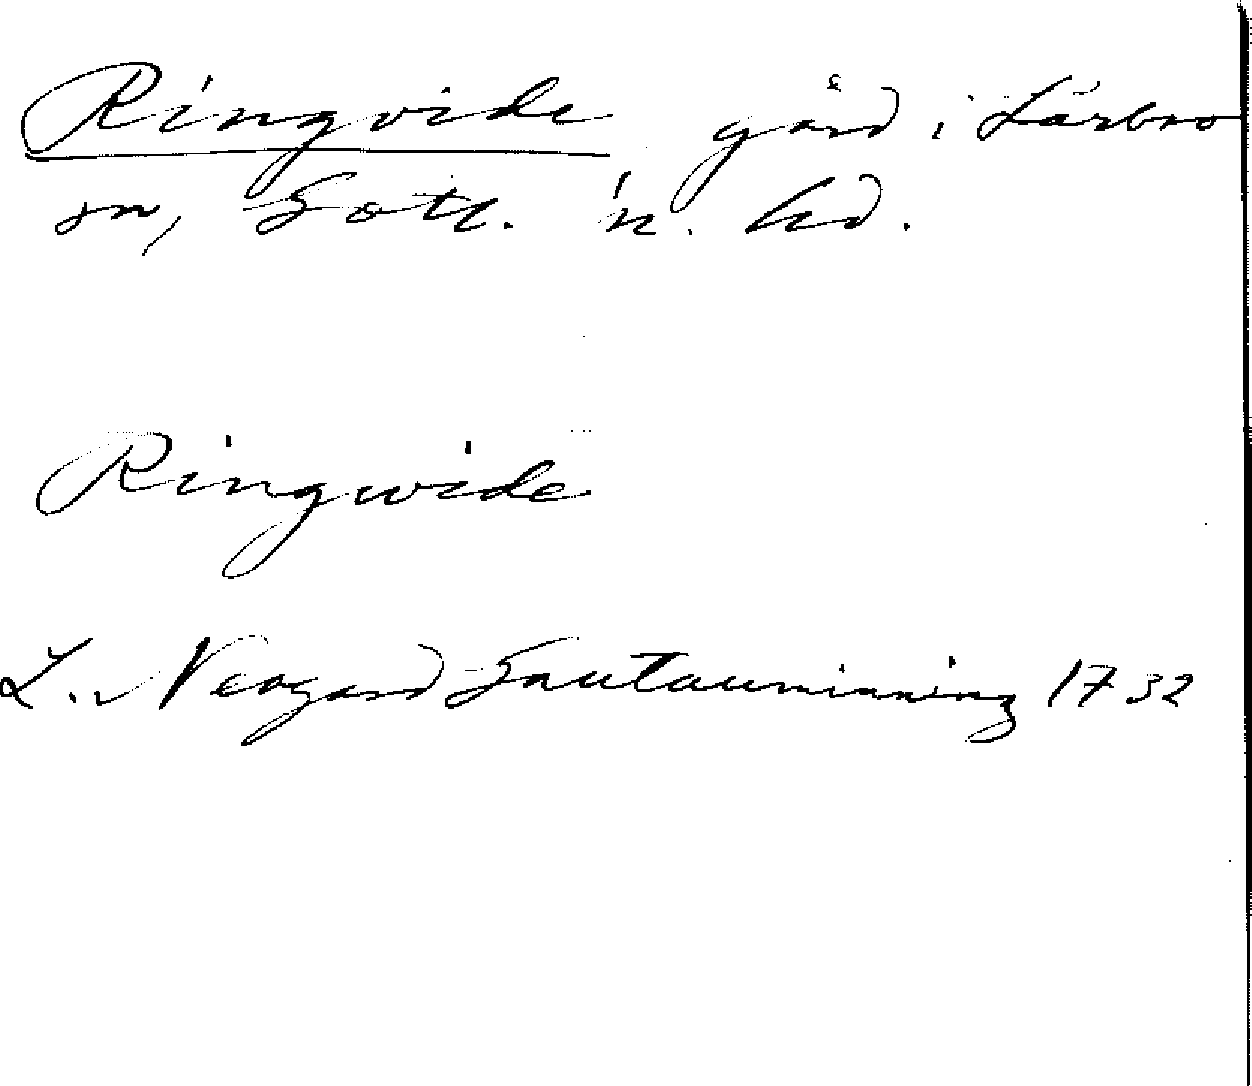 Ringvide gård i Lärbro
sn, Gotl. n. hd.
Ringwide
L. Neogard Gautauminning 1732